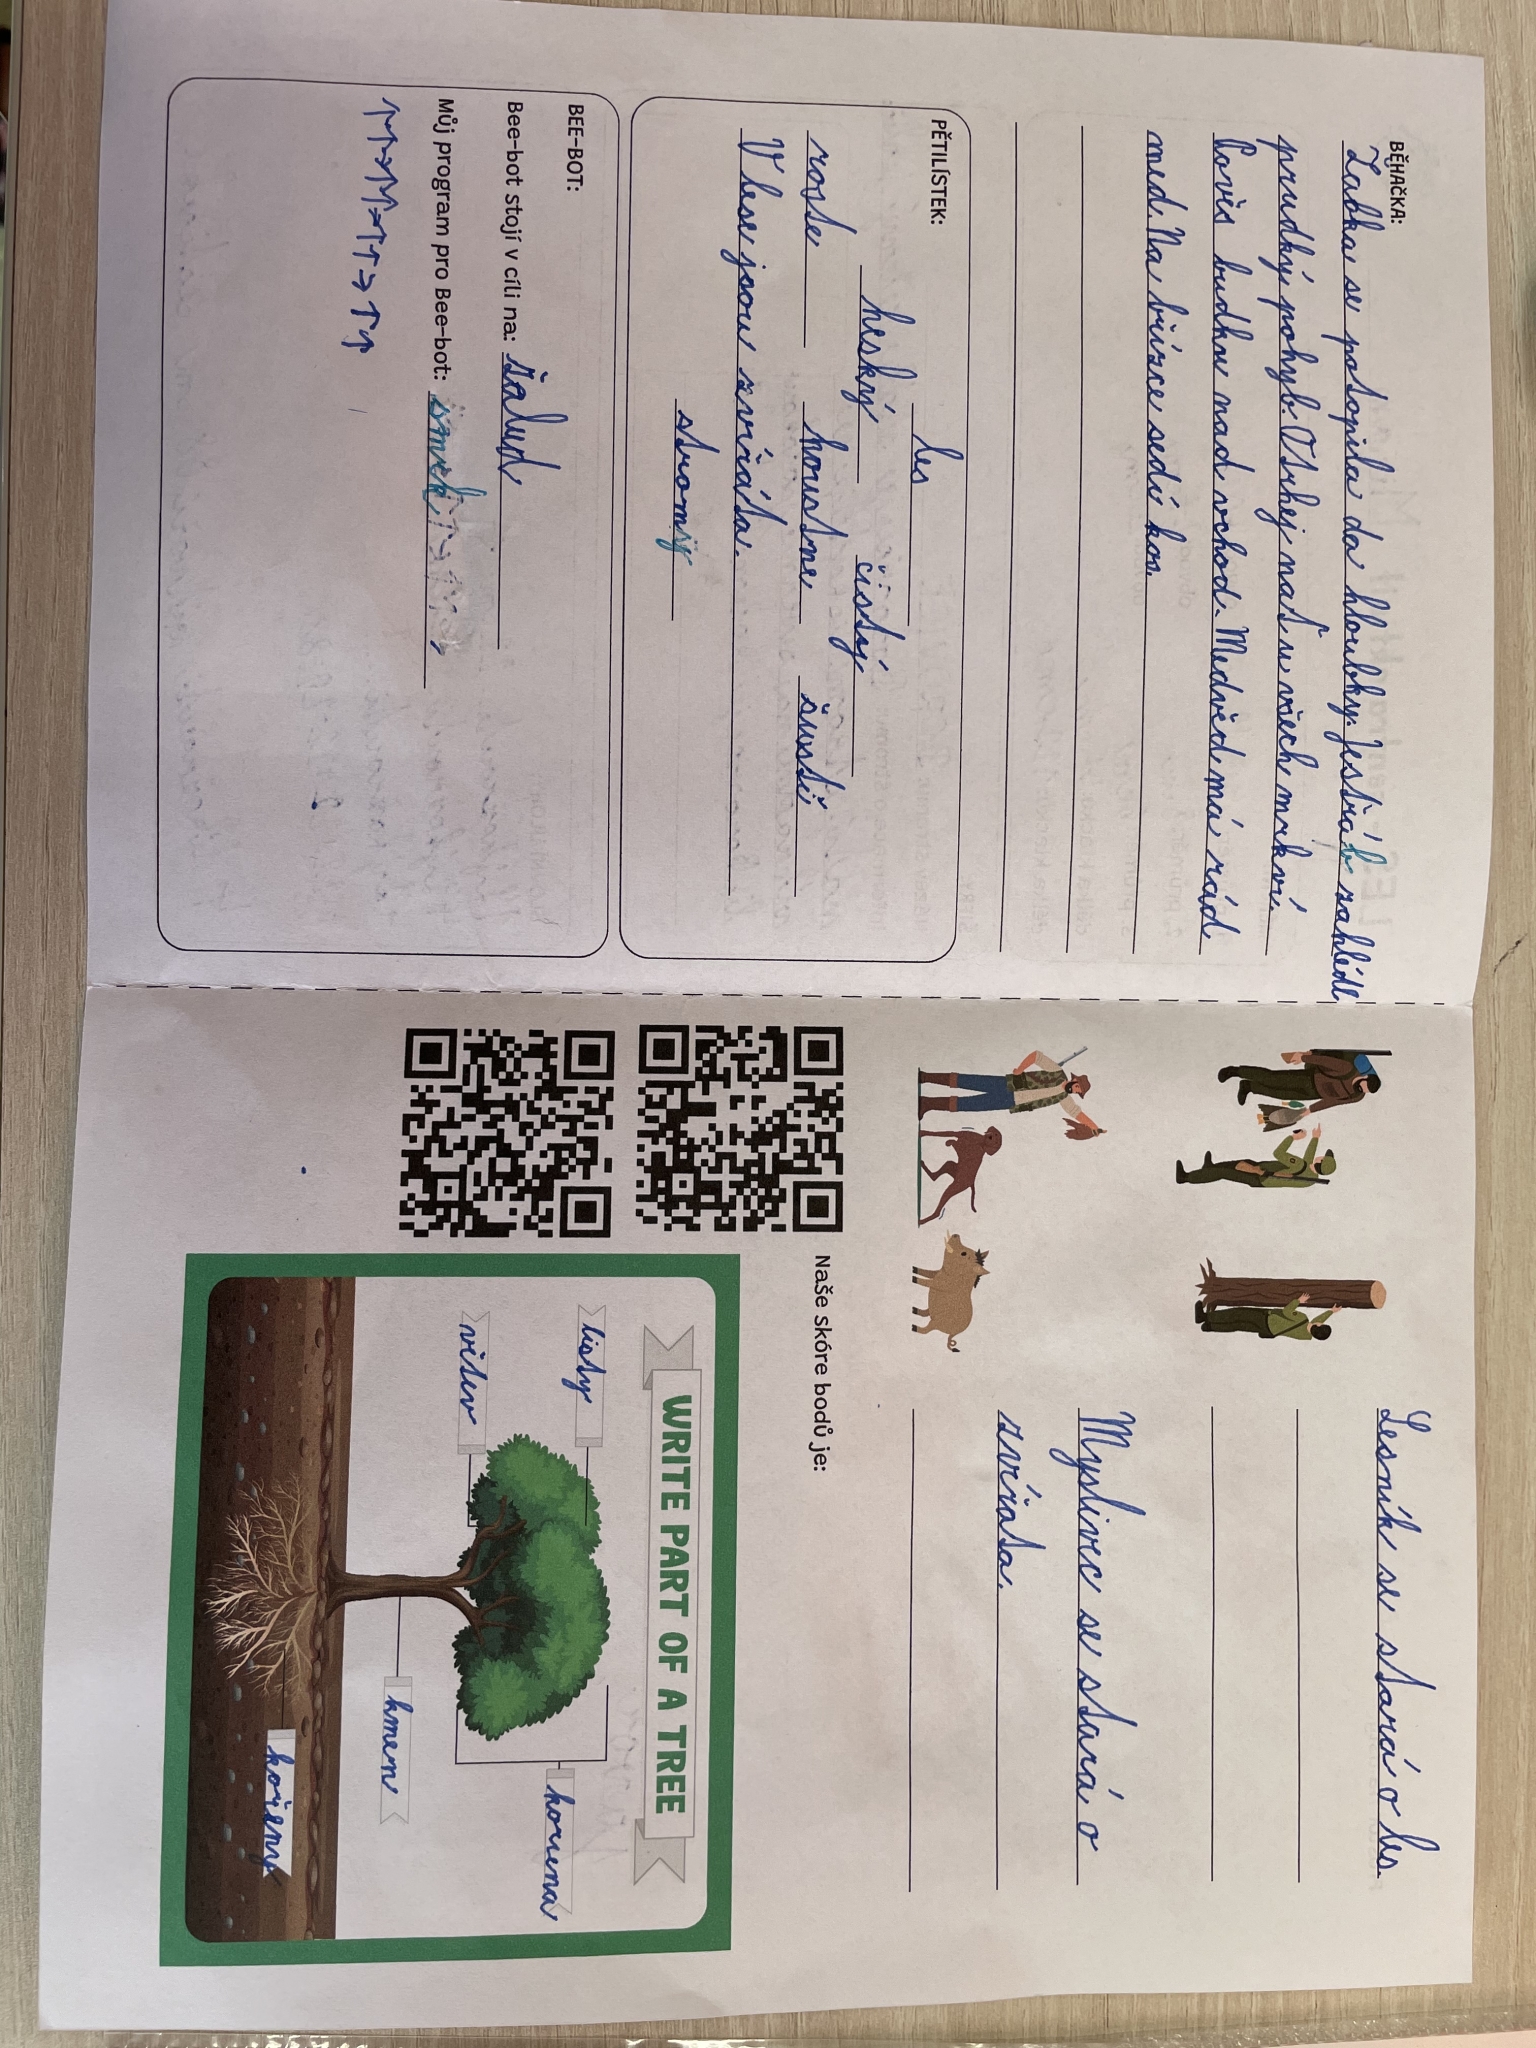 BĚHAČKA:
Žabka se potopila do hloubky. Jestřáb zahlédl
prudký pohyb. Ostrej nať u všech mrkví.
Pověs budku nad vchod. Medvěd má rád
med. Na bříze sedí kos.
PĚTILÍSTEK:
les
heský čistý
roste houstne šustí
V lese jsou zvířáta.
stromy
BEE-BOT:
Bee-bot stojí v cíli na: žalud
Můj program pro Bee-bot: smrk
↑↑→↑↑→↑↑→↑↑
Lesník se stará o les.
Myslivec se stará o
zvířata.
Naše skóre bodů je:
WRITE PART OF A TREE
listy
větev
koruna
kmen
kořeny